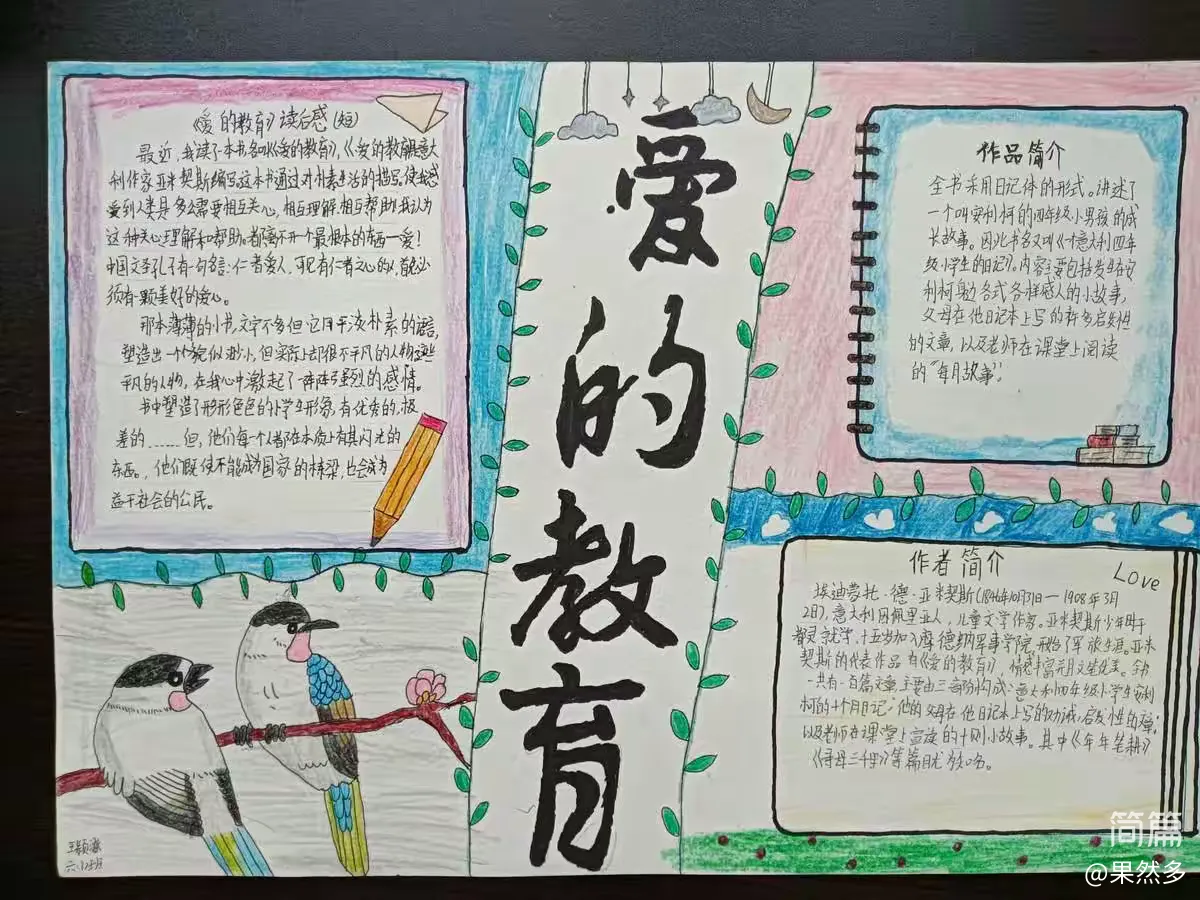 《爱的教育》读后感(短)
最近,我读了本书名叫《爱的教育》,《爱的教育》是意大
利作家亚米契斯编写,这本书通过对朴素生活的描写,使我感
受到人类是多么需要相互关心,相互理解,相互帮助!我认为
这种关心理解和帮助。都离不开一个最根本的东西一爱!
中国文圣孔子有一句名言:仁者爱人,可见有仁者之心的人,首先必
须有一颗美好的爱心。
那本薄薄的小书,文字不多但它用平淡朴素的语言,
塑造出一个个貌似渺小,但实际上却很不平凡的人物,这些
平凡的人物,在我心中激起了阵阵强烈的感情。
书中塑造了形形色色的小学生形象,有优秀的,极
差的......但,他们每一个人都在本质上有其闪光的
东西。他们既使不能成为国家的栋梁,也会成为
益于社会的公民。
爱的教育
作品简介
全书采用日记体的形式。讲述了
一个叫安利柯的四年级小男孩的成
长故事。因此书名又叫《一个意大利四年
级小学生的日记》。内容主要包括发生在安
利柯身边各式各样感人的小故事,
父母在他日记本上写的许多启发性
的文章,以及老师在课堂上阅读
的“每月故事”。
作者简介
Love
埃迪蒙托·德·亚米契斯(1846年10月31日—1908年3月
2日),意大利因佩里亚人,儿童文学作家。亚米契斯少年时于
都灵就学,十五岁加入摩德纳军事学院,开始了军旅生涯。亚米
契斯的代表作品为《爱的教育》,情感丰富并用文笔优美。全书
一共有一百篇文章,主要由三部分构成:意大利四年级小学生安利
柯的十个月日记,他的父母在他日记本上写的劝诫,启发性的文章;
以及老师在课堂上宣读的十则小故事。其中《少年笔耕》
《寻母三千里》等篇目尤为知名。
王颖
六(1)班
简篇
@果然多